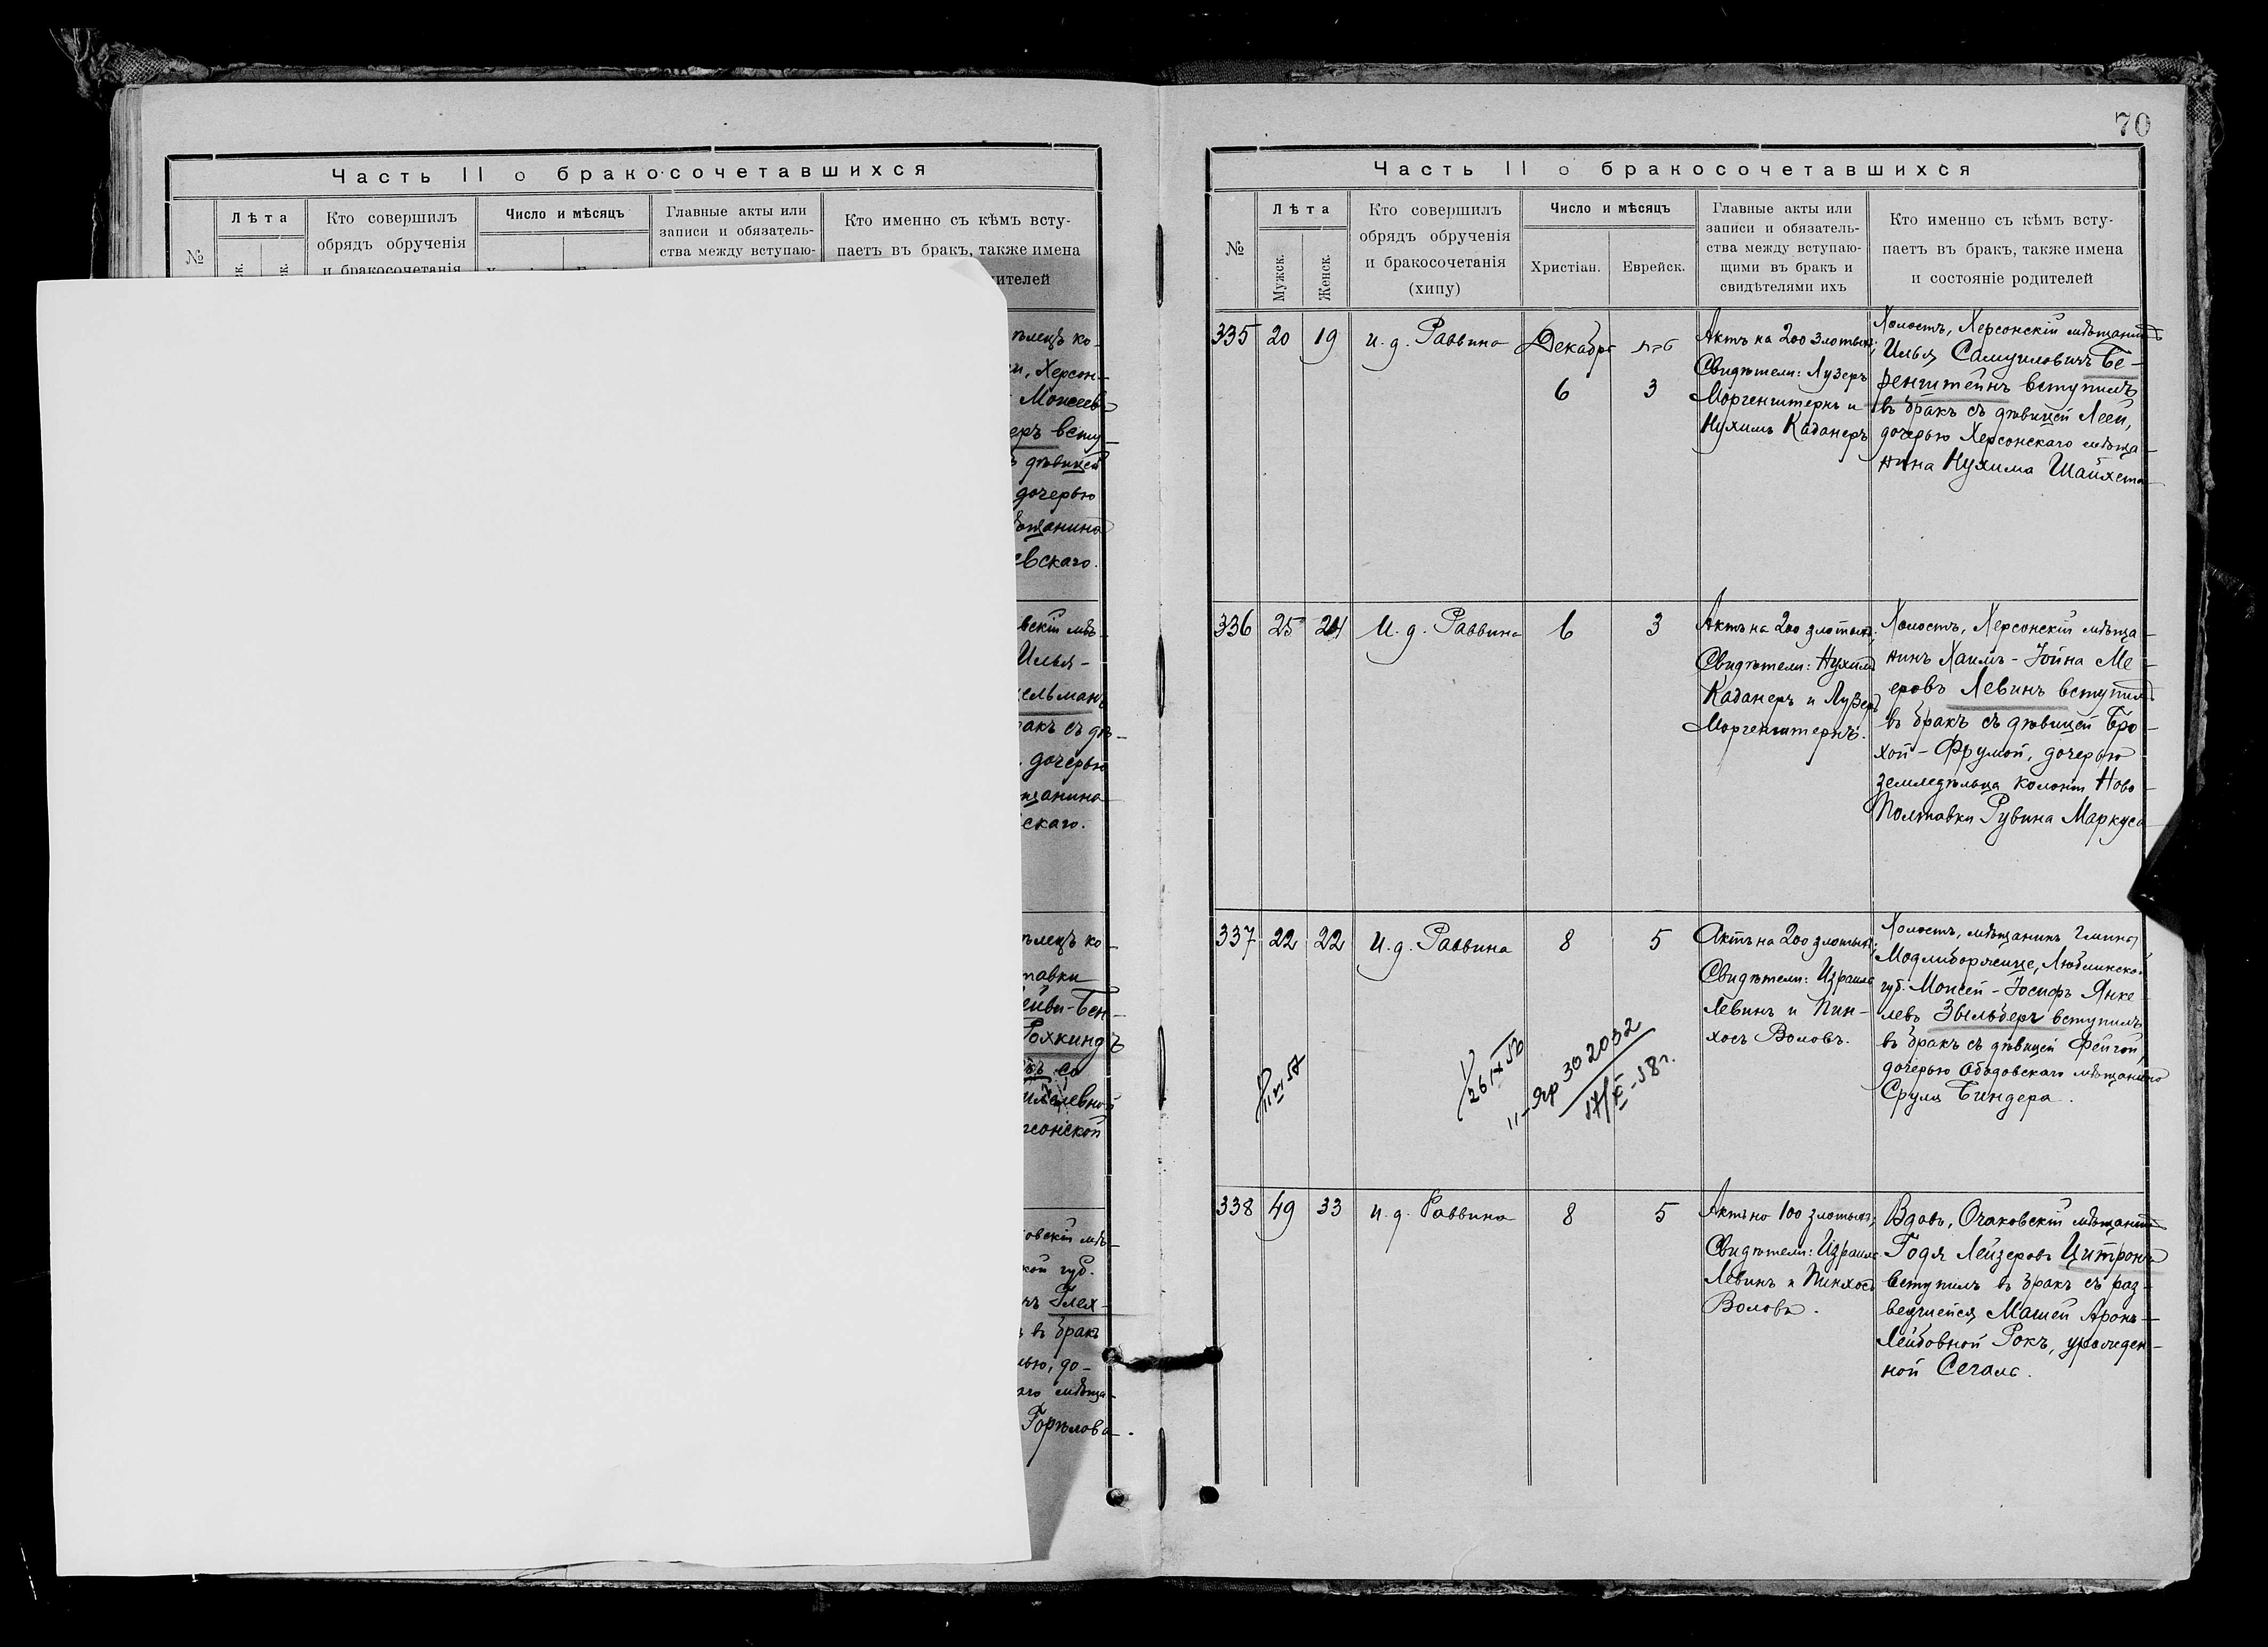 Часть II о бракосочетавшихся
№
Лѣта
Кто совершилъ
обрядъ обрученія
и бракосочетанія
Число и мѣсяцъ
Главные акты или
записи и обязатель-
ства между вступаю-
Кто именно съ кѣмъ всту-
паетъ въ бракъ, также имена
ителей
к.
к.
ѣлецъ ко-
и, Херсон-
Моисеев
еръ всту-
ъ дѣвицей
дочерью
ѣщанина
евскаго.
вскій мѣ-
Илья-
кельманъ
ракъ съ дѣ-
дочерью
ѣщанина
скаго.
ѣлецъ ко-
тавки
ейви-Бен-
Рохкиндъ
къ со
евной
рсонской
овскій мѣ-
кой губ.
чъ Глех-
ъ въ бракъ
лью, до-
аго мѣща-
Горѣлова.
70
Часть II о бракосочетавшихся
№
Лѣта
Мужск.
Женск.
Кто совершилъ
обрядъ обрученія
и бракосочетанія
(хипу)
Число и мѣсяцъ
Христіан.
Еврейск.
Главные акты или
записи и обязатель-
ства между вступаю-
щими въ бракъ и
свидѣтелями ихъ
Кто именно съ кѣмъ всту-
паетъ въ бракъ, также имена
и состояніе родителей
335 20 19 И. д. Раввина
Декабрь
6 3
Актъ на 200 злотыхъ;
Свидѣтели: Лузеръ
Моргенштернъ и
Нухимъ Каданеръ
Холостъ, Херсонскій мѣщанинъ
Илья Самуиловичъ Бе-
ренштейнъ вступилъ
въ бракъ съ дѣвицей Леей,
дочерью Херсонскаго мѣща-
нина Нухима Шайхета
336 25 24 И. д. Раввина 6 3
Актъ на 200 злотыхъ;
Свидѣтели: Нухимъ
Каданеръ и Лузеръ
Моргенштернъ.
Холостъ, Херсонскій мѣща-
нинъ Хаимъ-Іойна Ме-
еровъ Левинъ вступилъ
въ бракъ съ дѣвицей Бро-
хой-Фрумой, дочерью
земледѣльца колоніи Ново-
Полтавки Рувина Маркуса
337 22 22 И. д. Раввина 8 5
Актъ на 200 злотыхъ;
Свидѣтели: Израиль
Левинъ и Пин-
хосъ Воловъ.
Холостъ, мѣщанинъ гмины
Модлиборжице, Люблинской
губ. Моисей-Іосифъ Янке-
левъ Зыльберъ вступилъ
въ бракъ съ дѣвицей Фейгой,
дочерью Ободовскаго мѣщанина
Сруля Биндера.
11 VI 57
26 IX 56
11-Яр 302032
17/X-58 г.
338 49 33 И. д. Раввина 8 5
Актъ на 100 злотыхъ;
Свидѣтели: Израиль
Левинъ и Пинхосъ
Воловъ.
Вдовъ, Очаковскій мѣщанинъ
Годя Лейзеровъ Цитронъ
вступилъ въ бракъ съ раз-
ведшейся Машей Аронъ-
Лейбовной Рокъ, урожден-
ной Сегалъ.